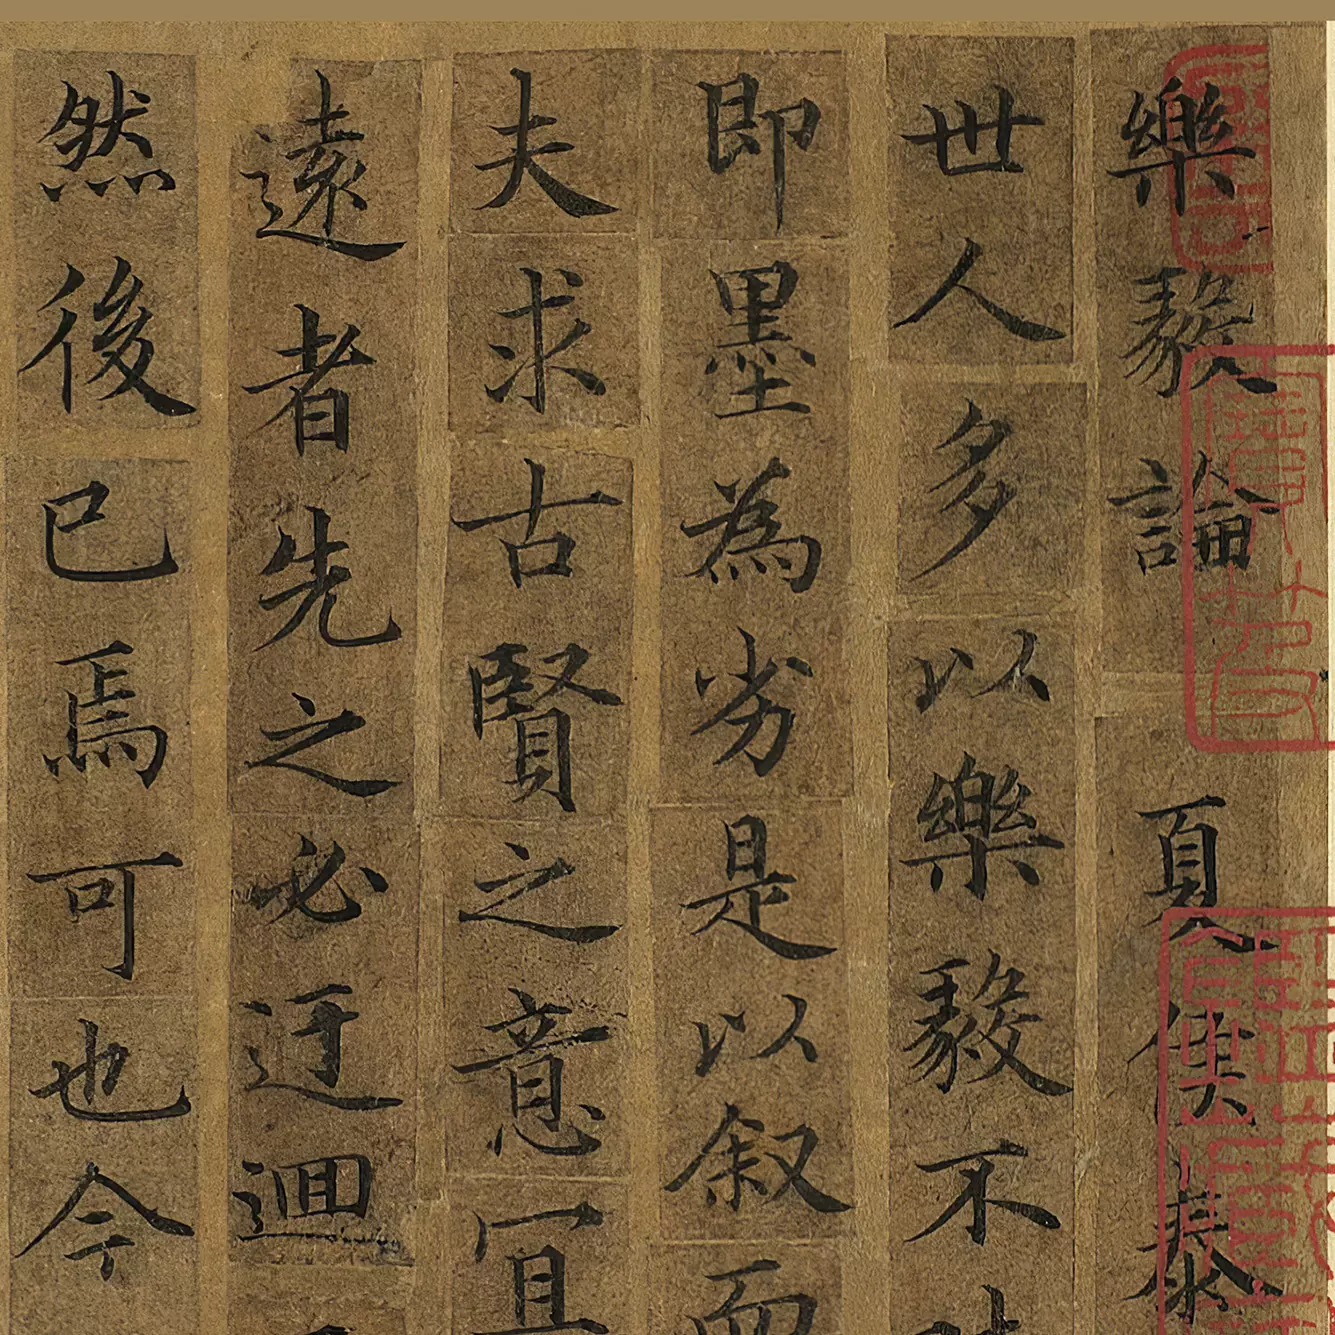 樂毅論 夏侯泰
世人多以樂毅不
即墨為劣是以叙而
夫求古賢之意宜
遠者先之必迂迴
然後已焉可也今